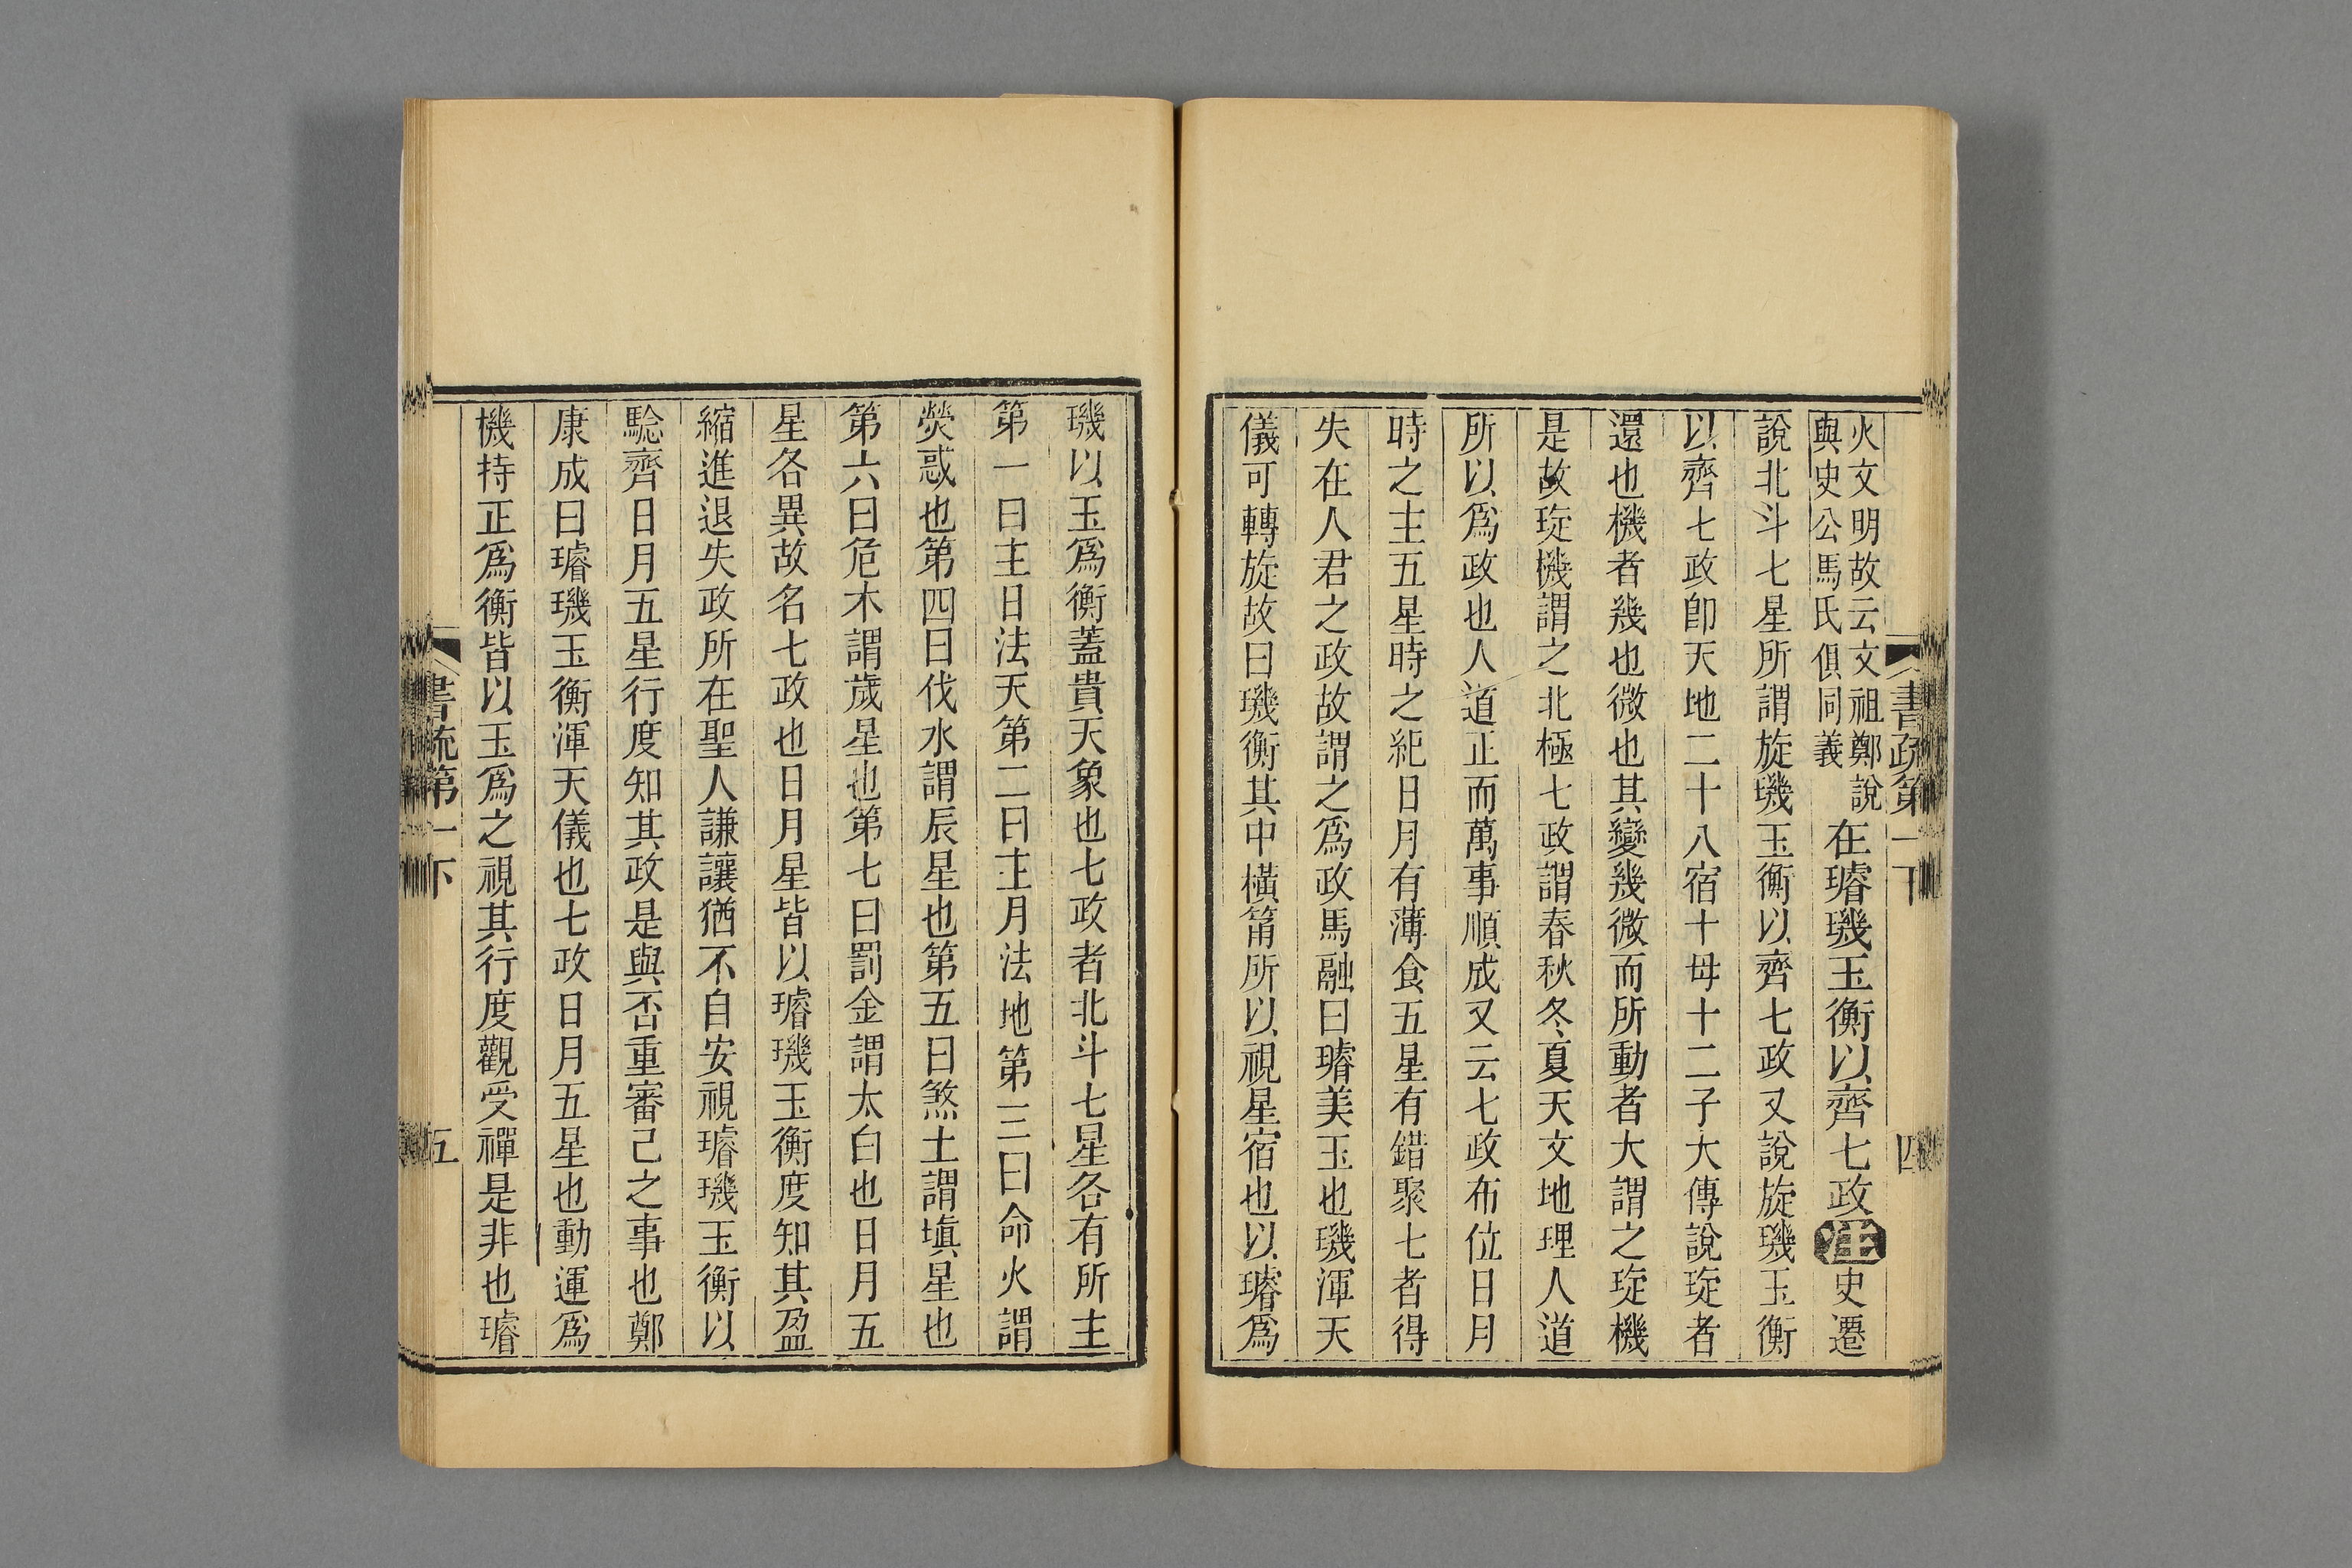 書疏第一下
四
火文明故云文祖鄭說
與史公馬氏俱同義
在璿璣玉衡以齊七政注史遷
說北斗七星所謂旋璣玉衡以齊七政又說旋璣玉衡
以齊七政卽天地二十八宿十母十二子大傳說琁者
還也機者幾也微也其變幾微而所動者大謂之琁機
是故琁機謂之北極七政謂春秋冬夏天文地理人道
所以爲政也人道正而萬事順成又云七政布位日月
時之主五星時之紀日月有薄食五星有錯聚七者得
失在人君之政故謂之爲政馬融曰璿美玉也璣渾天
儀可轉旋故曰璣衡其中橫筩所以視星宿也以璿爲
璣以玉爲衡蓋貴天象也七政者北斗七星各有所主
第一曰主日法天第二曰主月法地第三曰命火謂
熒惑也第四曰伐水謂辰星也第五曰煞土謂塡星也
第六曰危木謂歲星也第七曰罰金謂太白也日月五
星各異故名七政也日月星皆以璿璣玉衡度知其盈
縮進退失政所在聖人謙讓猶不自安視璿璣玉衡以
驗齊日月五星行度知其政是與否重審己之事也鄭
康成曰璿璣玉衡渾天儀也七政日月五星也動運爲
機持正爲衡皆以玉爲之視其行度觀受禪是非也璿
書疏第一下
五